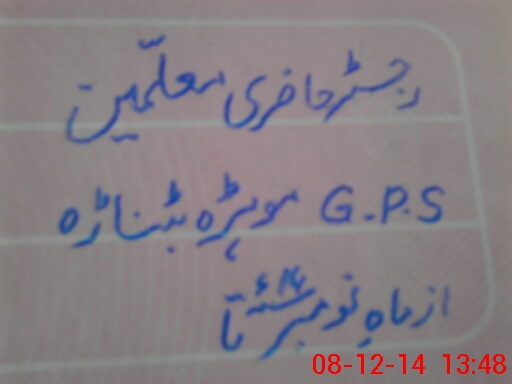 رجسٹر حاضری معلّمین
G.P.S موہڑہ بٹناڑہ
از ماہِ نومبر ۱۴ء تا
08-12-14 13:48